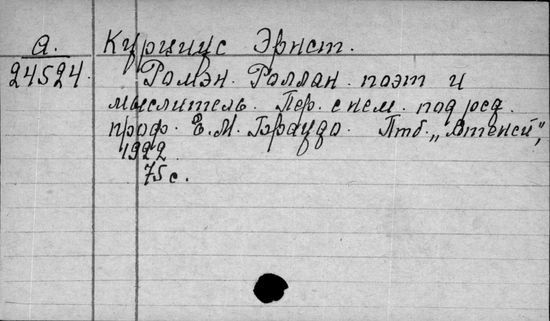 а. Курциус Эрнст.
24524. Ромэн. Роллан. поэт и
мыслитель. Пер. с нем. под ред.
проф. Е. М. Браудо. Птб. „Атеней",
1922.
75 с.